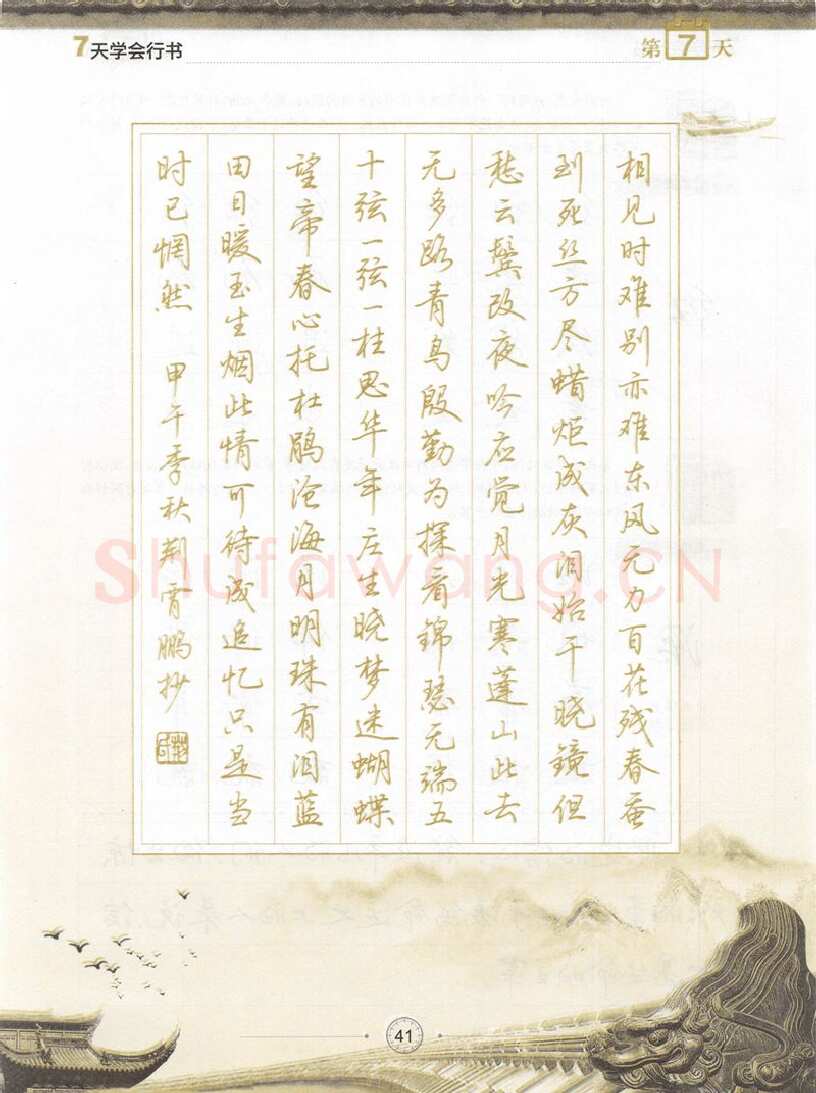 7天学会行书
第7天
相见时难别亦难东风无力百花残春蚕
到死丝方尽蜡炬成灰泪始干晓镜但
愁云鬓改夜吟应觉月光寒蓬山此去
无多路青鸟殷勤为探看锦瑟无端五
十弦一弦一柱思华年庄生晓梦迷蝴蝶
望帝春心托杜鹃沧海月明珠有泪蓝
田日暖玉生烟此情可待成追忆只是当
时已惘然 甲午季秋荆霄鹏抄
Shufawang.CN
41